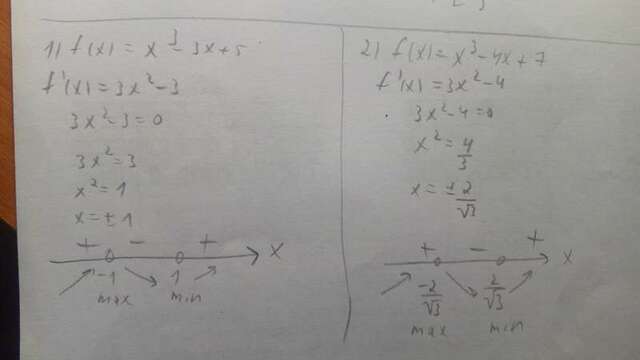 1) f(x) = x³ - 3x + 5
f'(x) = 3x² - 3
3x² - 3 = 0
3x² = 3
x² = 1
x = ± 1
+ - + x
-1 1
max min
2) f(x) = x³ - 4x + 7
f'(x) = 3x² - 4
3x² - 4 = 0
x² = 4/3
x = ± 2/√3
+ - + x
-2/√3 2/√3
max min